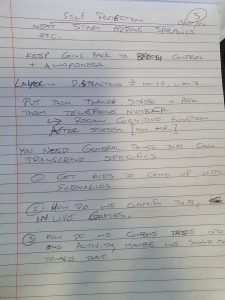 SELF PROTECTION
5
NEXT START ADDING SPECIFICS
ETC.
KEEP GOING BACK TO CONTROL
+ AWARENESS.
LAYER IN DISTRACTIONS & NOISE, LIGHTS
PUT THEM THROUGH STRESS + ASK
THEM TELEPHONE NUMBER
↳ REGAIN COGNITIVE FUNCTION
AFTER STRESS [AND HR.]
YOU NEED GENERAL THINGS THAT CAN
TRANSCEND SPECIFICS
① GET KIDS TO COME UP WITH
SCENARIOS
② HOW DO WE GAMIFY THAT,
IN LIVE GAMES.
③ HOW DO WE COMBINE THESE INTO
AND ACTIVITY, MAYBE WE SHOULD
TOWARDS THAT